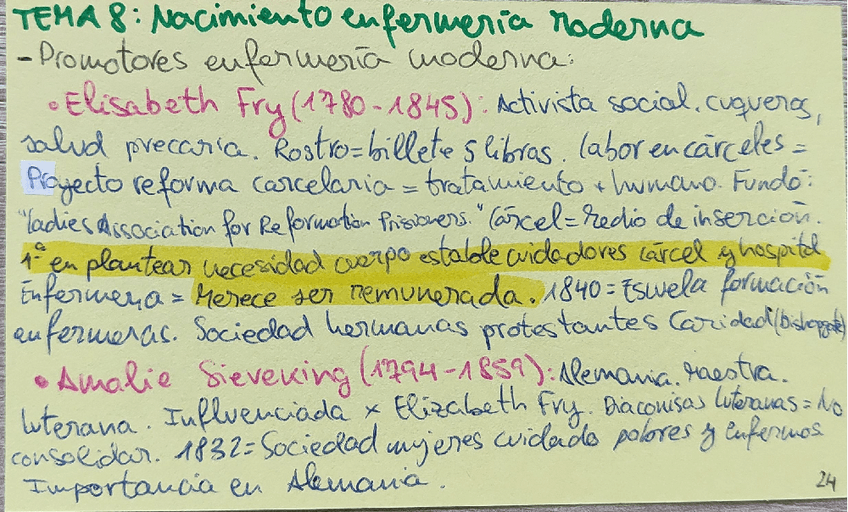 TEMA 8: Nacimiento enfermería moderna
- Promotores enfermería moderna:
• Elisabeth Fry (1780-1845): Activista social. cuáqueros,
salud precaria. Rostro = billete 5 libras. labor en cárceles =
Proyecto reforma carcelaria = tratamiento + humano. Fundó:
"ladies Association for Reformation Prisoners." Cárcel = Medio de inserción.
1ª en plantear necesidad cuerpo estable cuidadores cárcel y hospital
Enfermera = Merece ser remunerada. 1840 = Escuela formación
enfermeras. Sociedad hermanas protestantes Caridad (Bishopgate)
• Amalie Sieveking (1794-1859): Alemania. Maestra.
luterana. Influenciada x Elizabeth Fry. Diaconisas luteranas = No
consolidar. 1832 = Sociedad mujeres cuidado pobres y enfermos
Importancia en Alemania.
24